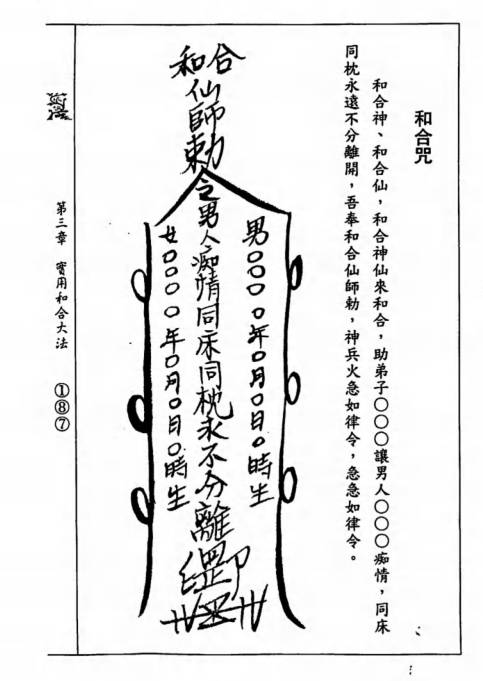 和合咒
和合神、和合仙，和合神仙來和合，助弟子○○○讓男人○○○痴情，同床
同枕永遠不分離開，吾奉和合仙師勅，神兵火急如律令，急急如律令。
和合
仙師勅令男人痴情同床同枕永不分離
男○○○○年○月○日○時生
女○○○○年○月○日○時生
第三章　實用和合大法
①⑧⑦